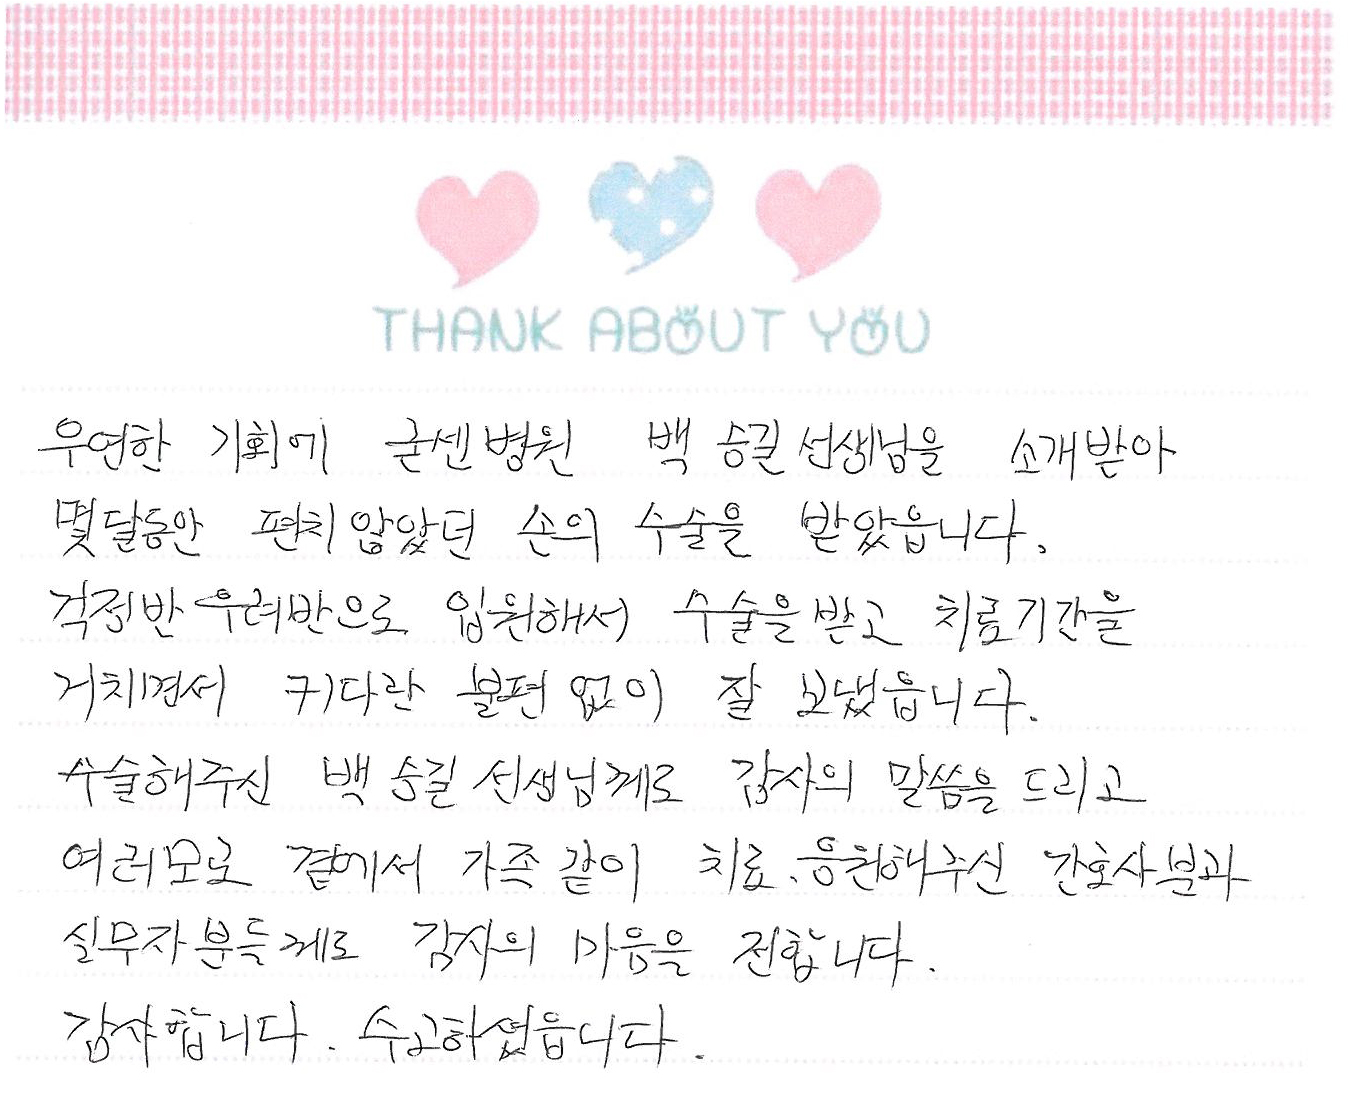 THANK ABOUT YOU
우연한 기회에 굳센병원 백 승길 선생님을 소개받아
몇달동안 편치않았던 손의 수술을 받았읍니다.
걱정반 우려반으로 입원해서 수술을 받고 치료기간을
거치면서 커다란 불편 없이 잘 보냈읍니다.
수술해주신 백 승길 선생님께로 감사의 말씀을 드리고
여러모로 곁에서 가족 같이 치료.응원해주신 간호사분과
실무자분들께로 감사의 마음을 전합니다.
감사합니다. 수고하셨읍니다.